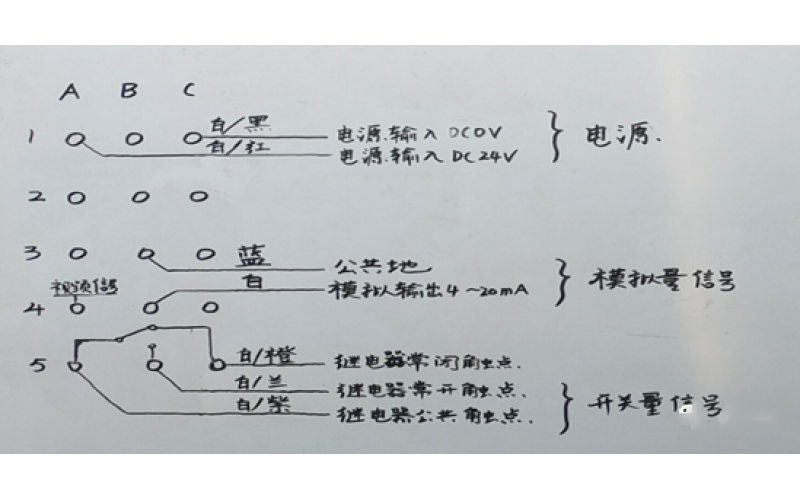 A B C
1 白/黑 电源输入 DC0V
白/红 电源输入 DC24V
电源.
2
3 蓝 公共地
视频信号
4 白 模拟输出 4~20mA
模拟量信号
5 白/橙 继电器常闭触点.
白/兰 继电器常开触点.
白/紫 继电器公共触点.
开关量信号